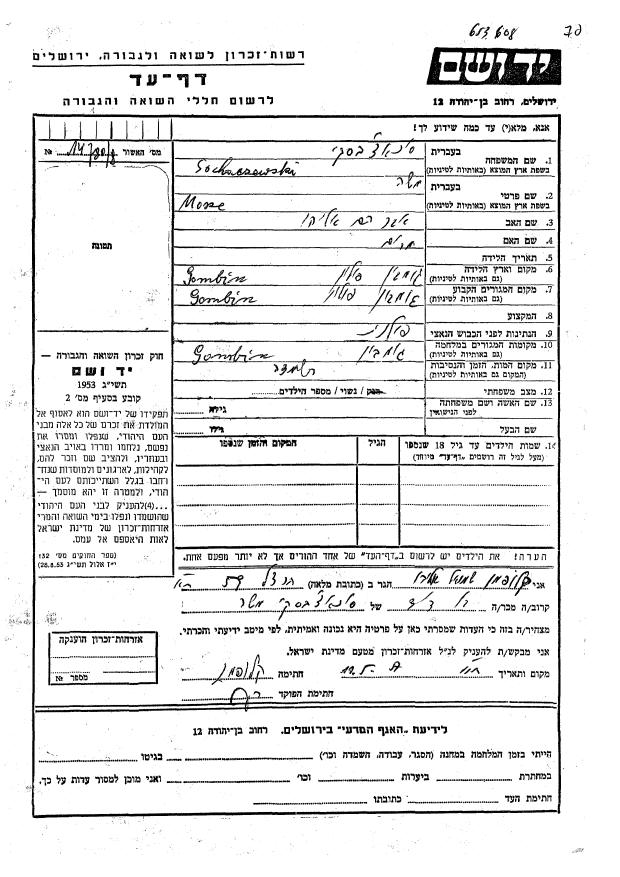 רשות-זכרון לשואה ולגבורה, ירושלים
דף-עד
לרשום חללי השואה והגבורה
יד ושם
ירושלים, רחוב בן-יהודה 12
אנא, מלא(י) עד כמה שידוע לך!
מס' האשור №
תמונה
1. שם המשפחה
בעברית
בשפת ארץ המוצא (באותיות לטיניות)
Sochaczewski
2. שם פרטי
בעברית
משה
בשפת ארץ המוצא (באותיות לטיניות)
Mosze
3. שם האב
4. שם האם
מרים
5. תאריך הלידה
6. מקום וארץ הלידה
(גם באותיות לטיניות)
גומבין פולין Gombin
7. מקום המגורים הקבוע
(גם באותיות לטיניות)
גומבין פולין Gombin
8. המקצוע
9. הנתינות לפני הכבוש הנאצי
פולנית
10. מקומות המגורים במלחמה
(גם באותיות לטיניות)
גומבין Gombin
11. מקום המות, הזמן והנסיבות
(המקום גם באותיות לטיניות)
12. מצב משפחתי
רווק / נשוי / מספר הילדים
13. שם האשה ושם משפחתה
לפני הנישואין
גילה
שם הבעל
גילו
14. שמות הילדים עד גיל 18 שנספו
(מעל לגיל זה רושמים "דף-עד" מיוחד)
הגיל
המקום והזמן שנספו
הערה! את הילדים יש לרשום ב"דף-העד" של אחד ההורים אך לא יותר מפעם אחת.
חוק זכרון השואה והגבורה —
יד ושם
תשי"ג 1953
קובע בסעיף מס' 2
תפקידו של יד-ושם הוא לאסוף אל
המולדת את זכרם של כל אלה מבני
העם היהודי, שנפלו ומסרו את
נפשם, נלחמו ומרדו באויב הנאצי
ובעוזריו, ולהציב שם וזכר להם,
לקהילות, לארגונים ולמוסדות שנח־
רבו בגלל השתייכותם לעם הי־
הודי, ולמטרה זו יהא מוסמך —
...(4) להעניק לבני העם היהודי
שהושמדו ונפלו בימי השואה והמרי
אזרחות-זכרון של מדינת ישראל
לאות היאספם אל עמם.
(ספר החוקים מס' 132
י"ז אלול תשי"ג 28.8.53)
אני
הגר ב (כתובת מלאה)
קרוב/ה מכר/ה
של
משה
מצהיר/ה בזה כי העדות שמסרתי כאן על פרטיה היא נכונה ואמיתית, לפי מיטב ידיעתי והכרתי.
אני מבקש/ת להעניק לנ"ל אזרחות-זכרון מטעם מדינת ישראל.
מקום ותאריך
חתימה
חתימת הפוקד
אזרחות-זכרון הוענקה
מספר №
לידיעת "האגף המדעי" בירושלים, רחוב בן-יהודה 12
הייתי בזמן המלחמה במחנה (הסגר, עבודה, השמדה וכו')
בגיטו
במחתרת
ביערות
וכו'
ואני מוכן למסור עדות על כך.
חתימת העד
כתובתו